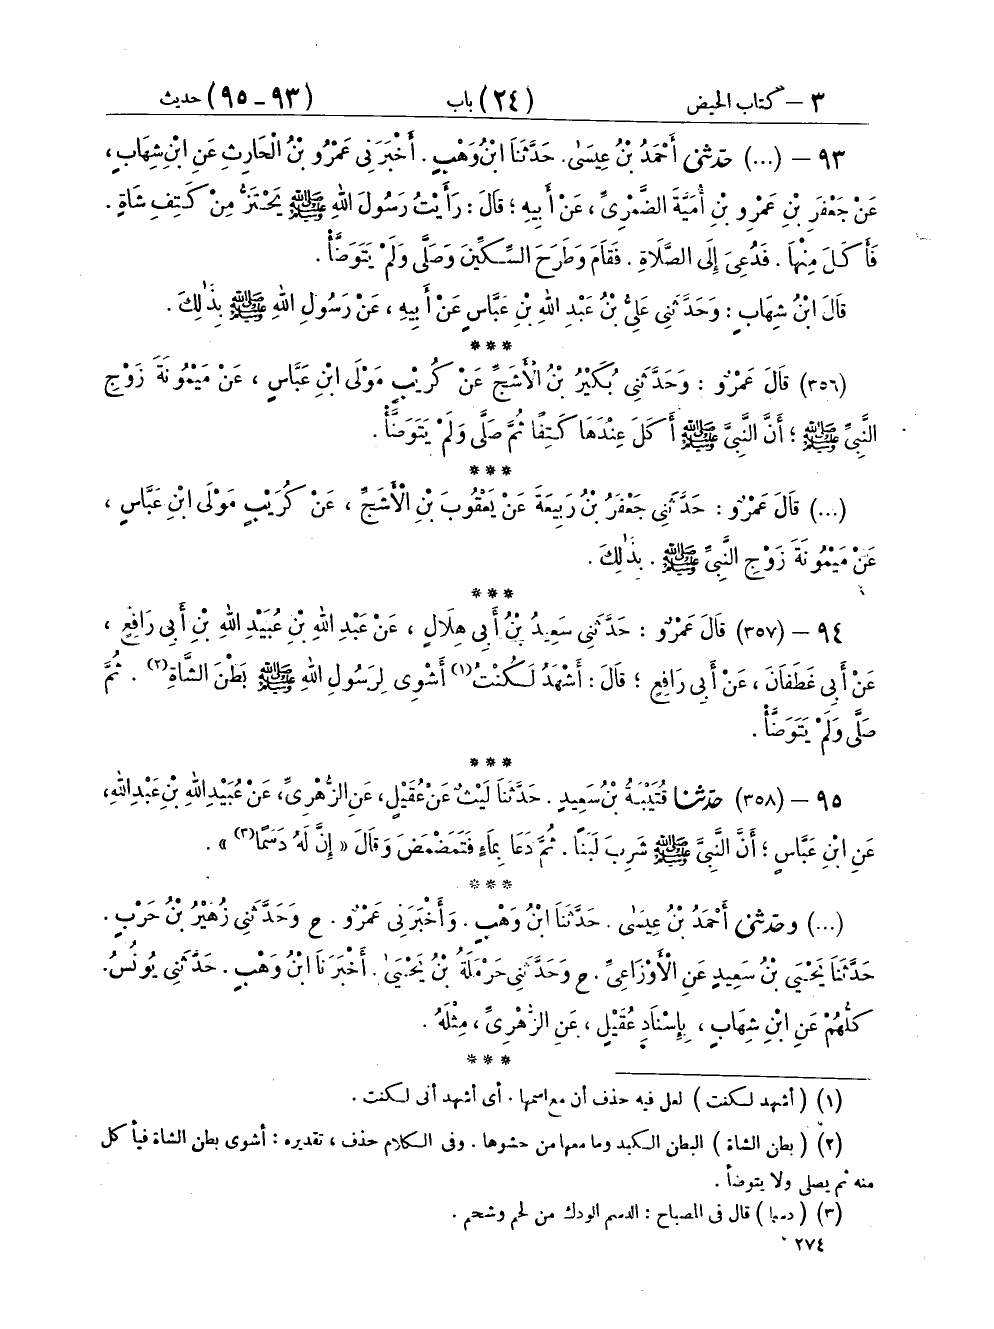 ٣ – كتاب الحيض (٢٤) باب (٩٣-٩٥) حديث
٩٣ – (...) حَدَّثَنِي أَحْمَدُ بْنُ عِيسَىٰ. حَدَّثَنَا ابْنُ وَهْبٍ. أَخْبَرَنِي عَمْرُو بْنُ الْحَارِثِ عَنِ ابْنِ شِهَابٍ،
عَنْ جَعْفَرِ بْنِ عَمْرِو بْنِ أُمَيَّةَ الضَّمْرِيِّ، عَنْ أَبِيهِ؛ قَالَ: رَأَيْتُ رَسُولَ اللهِ ﷺ يَحْتَزُّ مِنْ كَتِفِ شَاةٍ.
فَأَكَلَ مِنْهَا. فَدُعِيَ إِلَى الصَّلَاةِ. فَقَامَ وَطَرَحَ السِّكِّينَ وَصَلَّى وَلَمْ يَتَوَضَّأْ.
قَالَ ابْنُ شِهَابٍ: وَحَدَّثَنِي عَلِيُّ بْنُ عَبْدِ اللهِ بْنِ عَبَّاسٍ عَنْ أَبِيهِ، عَنْ رَسُولِ اللهِ ﷺ بِذَٰلِكَ.
***
(٣٥٦) قَالَ عَمْرٌو: وَحَدَّثَنِي بُكَيْرُ بْنُ الْأَشَجِّ عَنْ كُرَيْبٍ مَوْلَى ابْنِ عَبَّاسٍ، عَنْ مَيْمُونَةَ زَوْجِ
النَّبِيِّ ﷺ؛ أَنَّ النَّبِيَّ ﷺ أَكَلَ عِنْدَهَا كَتِفًا ثُمَّ صَلَّى وَلَمْ يَتَوَضَّأْ.
***
(...) قَالَ عَمْرٌو: حَدَّثَنِي جَعْفَرُ بْنُ رَبِيعَةَ عَنْ يَعْقُوبَ بْنِ الْأَشَجِّ، عَنْ كُرَيْبٍ مَوْلَى ابْنِ عَبَّاسٍ،
عَنْ مَيْمُونَةَ زَوْجِ النَّبِيِّ ﷺ. بِذَٰلِكَ.
***
٩٤ – (٣٥٧) قَالَ عَمْرٌو: حَدَّثَنِي سَعِيدُ بْنُ أَبِي هِلَالٍ، عَنْ عَبْدِ اللهِ بْنِ عُبَيْدِ اللهِ بْنِ أَبِي رَافِعٍ،
عَنْ أَبِي غَطَفَانَ، عَنْ أَبِي رَافِعٍ؛ قَالَ: أَشْهَدُ لَكُنْتُ(١) أَشْوِى لِرَسُولِ اللهِ ﷺ بَطْنَ الشَّاةِ(٢). ثُمَّ
صَلَّى وَلَمْ يَتَوَضَّأْ.
***
٩٥ – (٣٥٨) حَدَّثَنَا قُتَيْبَةُ بْنُ سَعِيدٍ. حَدَّثَنَا لَيْثٌ عَنْ عُقَيْلٍ، عَنِ الزُّهْرِيِّ، عَنْ عُبَيْدِ اللهِ بْنِ عَبْدِ اللهِ،
عَنِ ابْنِ عَبَّاسٍ؛ أَنَّ النَّبِيَّ ﷺ شَرِبَ لَبَنًا. ثُمَّ دَعَا بِمَاءٍ فَتَمَضْمَضَ وَقَالَ «إِنَّ لَهُ دَسَمًا(٣)».
***
(...) وحَدَّثَنِي أَحْمَدُ بْنُ عِيسَىٰ. حَدَّثَنَا ابْنُ وَهْبٍ. وَأَخْبَرَنِي عَمْرٌو. ح وَحَدَّثَنِي زُهَيْرُ بْنُ حَرْبٍ.
حَدَّثَنَا يَحْيَى بْنُ سَعِيدٍ عَنِ الْأَوْزَاعِيِّ. ح وَحَدَّثَنِي حَرْمَلَةُ بْنُ يَحْيَىٰ. أَخْبَرَنَا ابْنُ وَهْبٍ. حَدَّثَنِي يُونُسُ.
كُلُّهُمْ عَنِ ابْنِ شِهَابٍ، بِإِسْنَادِ عُقَيْلٍ، عَنِ الزُّهْرِيِّ، مِثْلَهُ.
***
(١) (أشهد لكنت) لعل فيه حذف أن مع اسمها. أى أشهد أنى لكنت.
(٢) (بطن الشاة) البطن الكبد وما معها من حشوها. وفى الكلام حذف، تقديره: أشوى بطن الشاة فيأكل
منه ثم يصلى ولا يتوضأ.
(٣) (دسما) قال فى المصباح: الدسم الودك من لحم وشحم.
٢٧٤